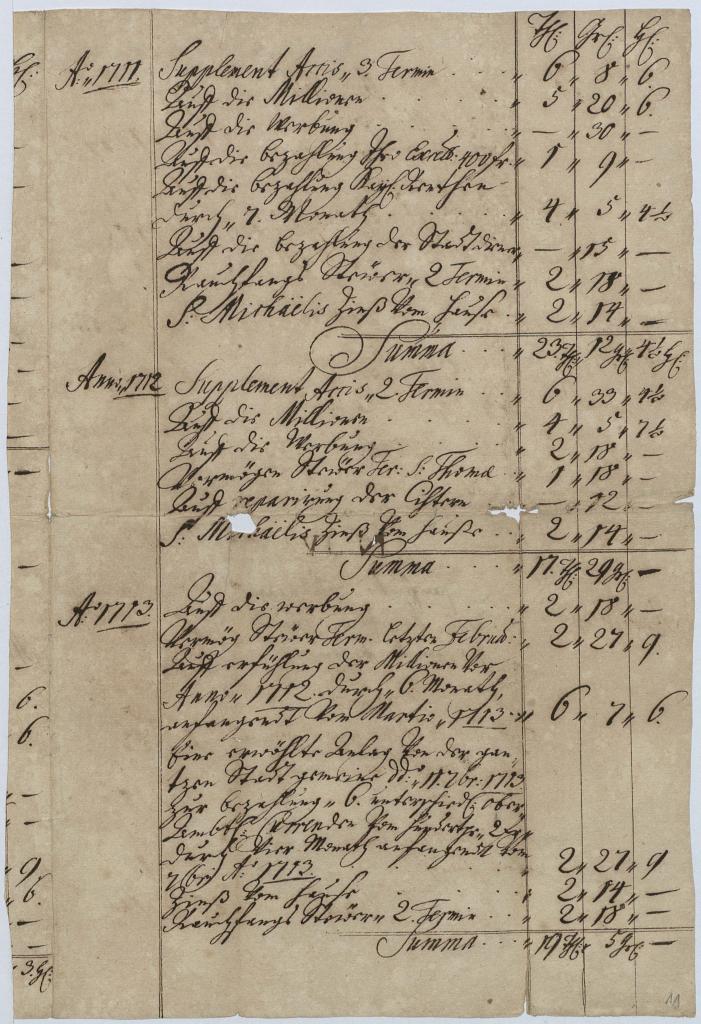 Thl: Grl: Hl:
Aº 1711. Supplement Accis„ 3. Termin „ 6 „ 8 „ 6
Auff die Millionen „ 5 „ 20 „ 6.
Auff die Werbung „ — „ 30 „ —
Auff die bezahlung Ihro 400 fr „ 1 „ 9 „ —
Auff die bezahlung Kayſ:
durch „ 7. Monath „ 4 „ 5 „ 4½
Auff die bezahlung der Stadtdiener „ — „ 15 „ —
Rauchfangs Steüer „ 2 Termin „ 2 „ 18 „ —
S: Michäelis Zinß Vom Hauſe „ 2 „ 14 „ —
Summa „ 23 Thl: 12 Grl: 4½ Hl:
Anno 1712 Supplement Accis„ 2 Termin „ 6 „ 33 „ 4½
Auff die Millionen „ 4 „ 5 „ 7½
Auff die Werbung „ 2 „ 18 „ —
Vermögen Steüer Ter: S: Thomæ „ 1 „ 18 „ —
Auff reparirung der Cistern — „ 12 „ —
S: Michäelis Zinß Vom Hauße „ 2 „ 14 „ —
Summa „ 17. Thl: 29 Grl: —
Aº 1713. Auff die werbung „ 2 „ 18 „ —
Vermög Steüer Term. letzten Februar: „ 2 „ 27 „ 9.
Auff erfühlung der Millionen Vor
Anno „ 1712. durch „ 6. Monath,
anfangendt Vom Martio „ 1713. „ 6 „ 7 „ 6.
Eine erwöhlte Anlag Von der gan-
tzen Stadt gemeine dd: „ 11. 7br: 1713
Zur bezahlung „ 6. unterschiedl: Ober
Ambtl: Vom
durch Vier Monath anfangendt Vom
7br: Aº 1713. „ 2 „ 27 „ 9
Zinß Vom Hauſe „ 2 „ 14 „ —
Rauchfangs Steüer „ 2. Termin „ 2 „ 18 „ —
Summa „ 19 Thl: 5 Grl: —
6.
6.
9
6.
3. Hl: